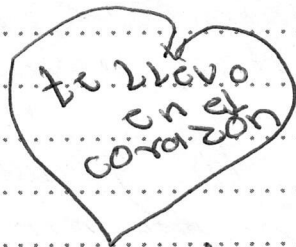 te llevo
en el
corazón